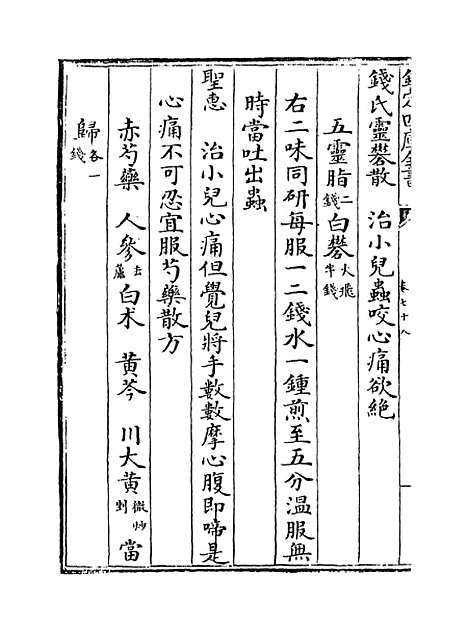 欽定四庫全書
卷七十八
錢氏靈礬散　治小兒蟲咬心痛欲絶
五靈脂二錢白礬火飛半錢
右二味同研每服一二錢水一鍾煎至五分温服無
時當吐出蟲
聖惠　治小兒心痛但覺兒將手數數摩心腹即啼是
心痛不可忍宜服芍藥散方
赤芍藥　人參去蘆白术　黄芩　川大黄微炒剉當
歸各一錢